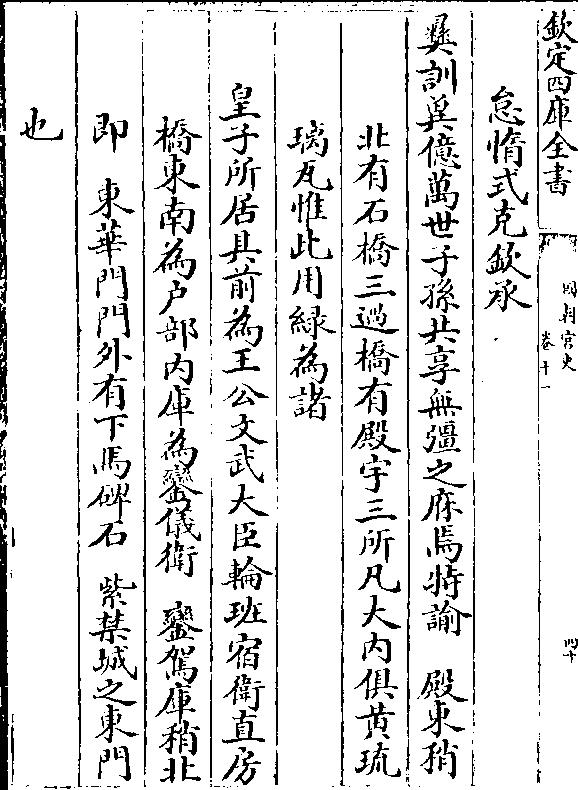 欽定四庫全書
國朝宮史
卷十一
四十
怠惰式克欽承
彞訓冀億萬世子孫共享無彊之庥焉特諭　殿東稍
北有石橋三過橋有殿宇三所凡大内俱黄琉
璃瓦惟此用緑為諸
皇子所居其前為王公文武大臣輪班宿衛直房
橋東南為户部内庫為鑾儀衛　鑾駕庫稍北
即　東華門門外有下馬碑石　紫禁城之東門
也